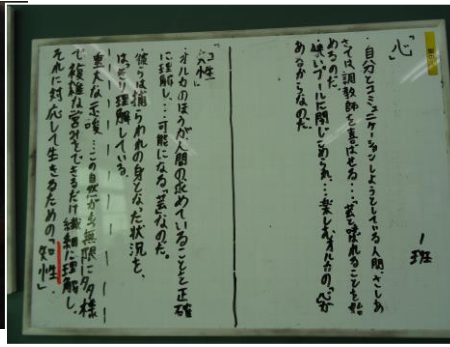 一班
「心」
・自分とコミュニケーションしようとしている人間、さしあ
たっては調教師を喜ばせる…「芸」と呼ばれることを始
めるのだ。
・狭いプールに閉じこめられ…楽しむオルカの「心」が
あるからなのだ。
「知性」
・オルカのほうが人間の求めていることを正確
に理解し…可能になる「芸」なのだ。
・彼らは捕らわれの身となった状況を、
はっきり理解している。
重大な示唆…この自然がもつ無限に多様
で複雑な営みをできるだけ繊細に理解し、
それに対応して生きるための「知性」